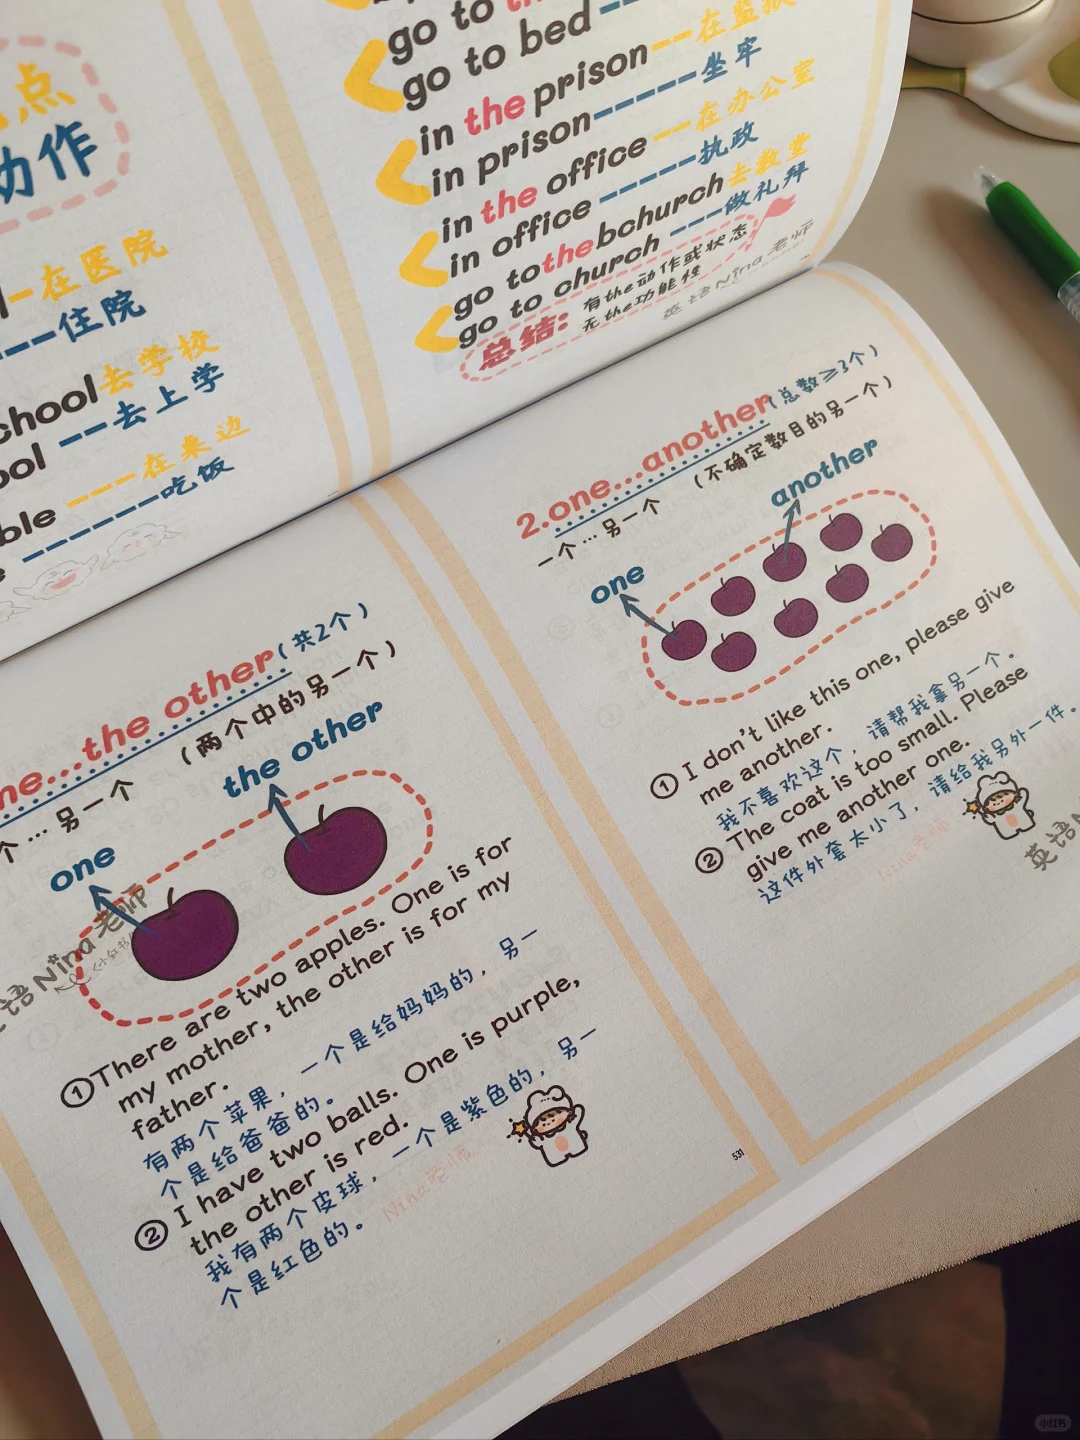 点
动作
在医院
住院
去学校
去上学
----在桌边
吃饭
go to
go to bed
in the prison--在监狱
in prison------坐牢
in the office --在办公室
in office ------执政
go tothebchurch去教堂
go to church ---做礼拜
总结: 有the动作或状态
无the功能性
英语Nina老师
one...the other(共2个)
个…另一个 (两个中的另一个)
the other
one
英语Nina老师
①There are two apples. One is for
my mother, the other is for my
father.
有两个苹果,一个是给妈妈的,另一
个是给爸爸的。
② I have two balls. One is purple,
the other is red.
我有两个皮球,一个是紫色的,另一
个是红色的。
Nina老师
531
2.one...another(总数≥3个)
一个…另一个 (不确定数目的另一个)
another
one
① I don't like this one, please give
me another.
我不喜欢这个,请帮我拿另一个。
② The coat is too small. Please
give me another one.
这件外套太小了,请给我另外一件。
Nina老师
英语N
小红书